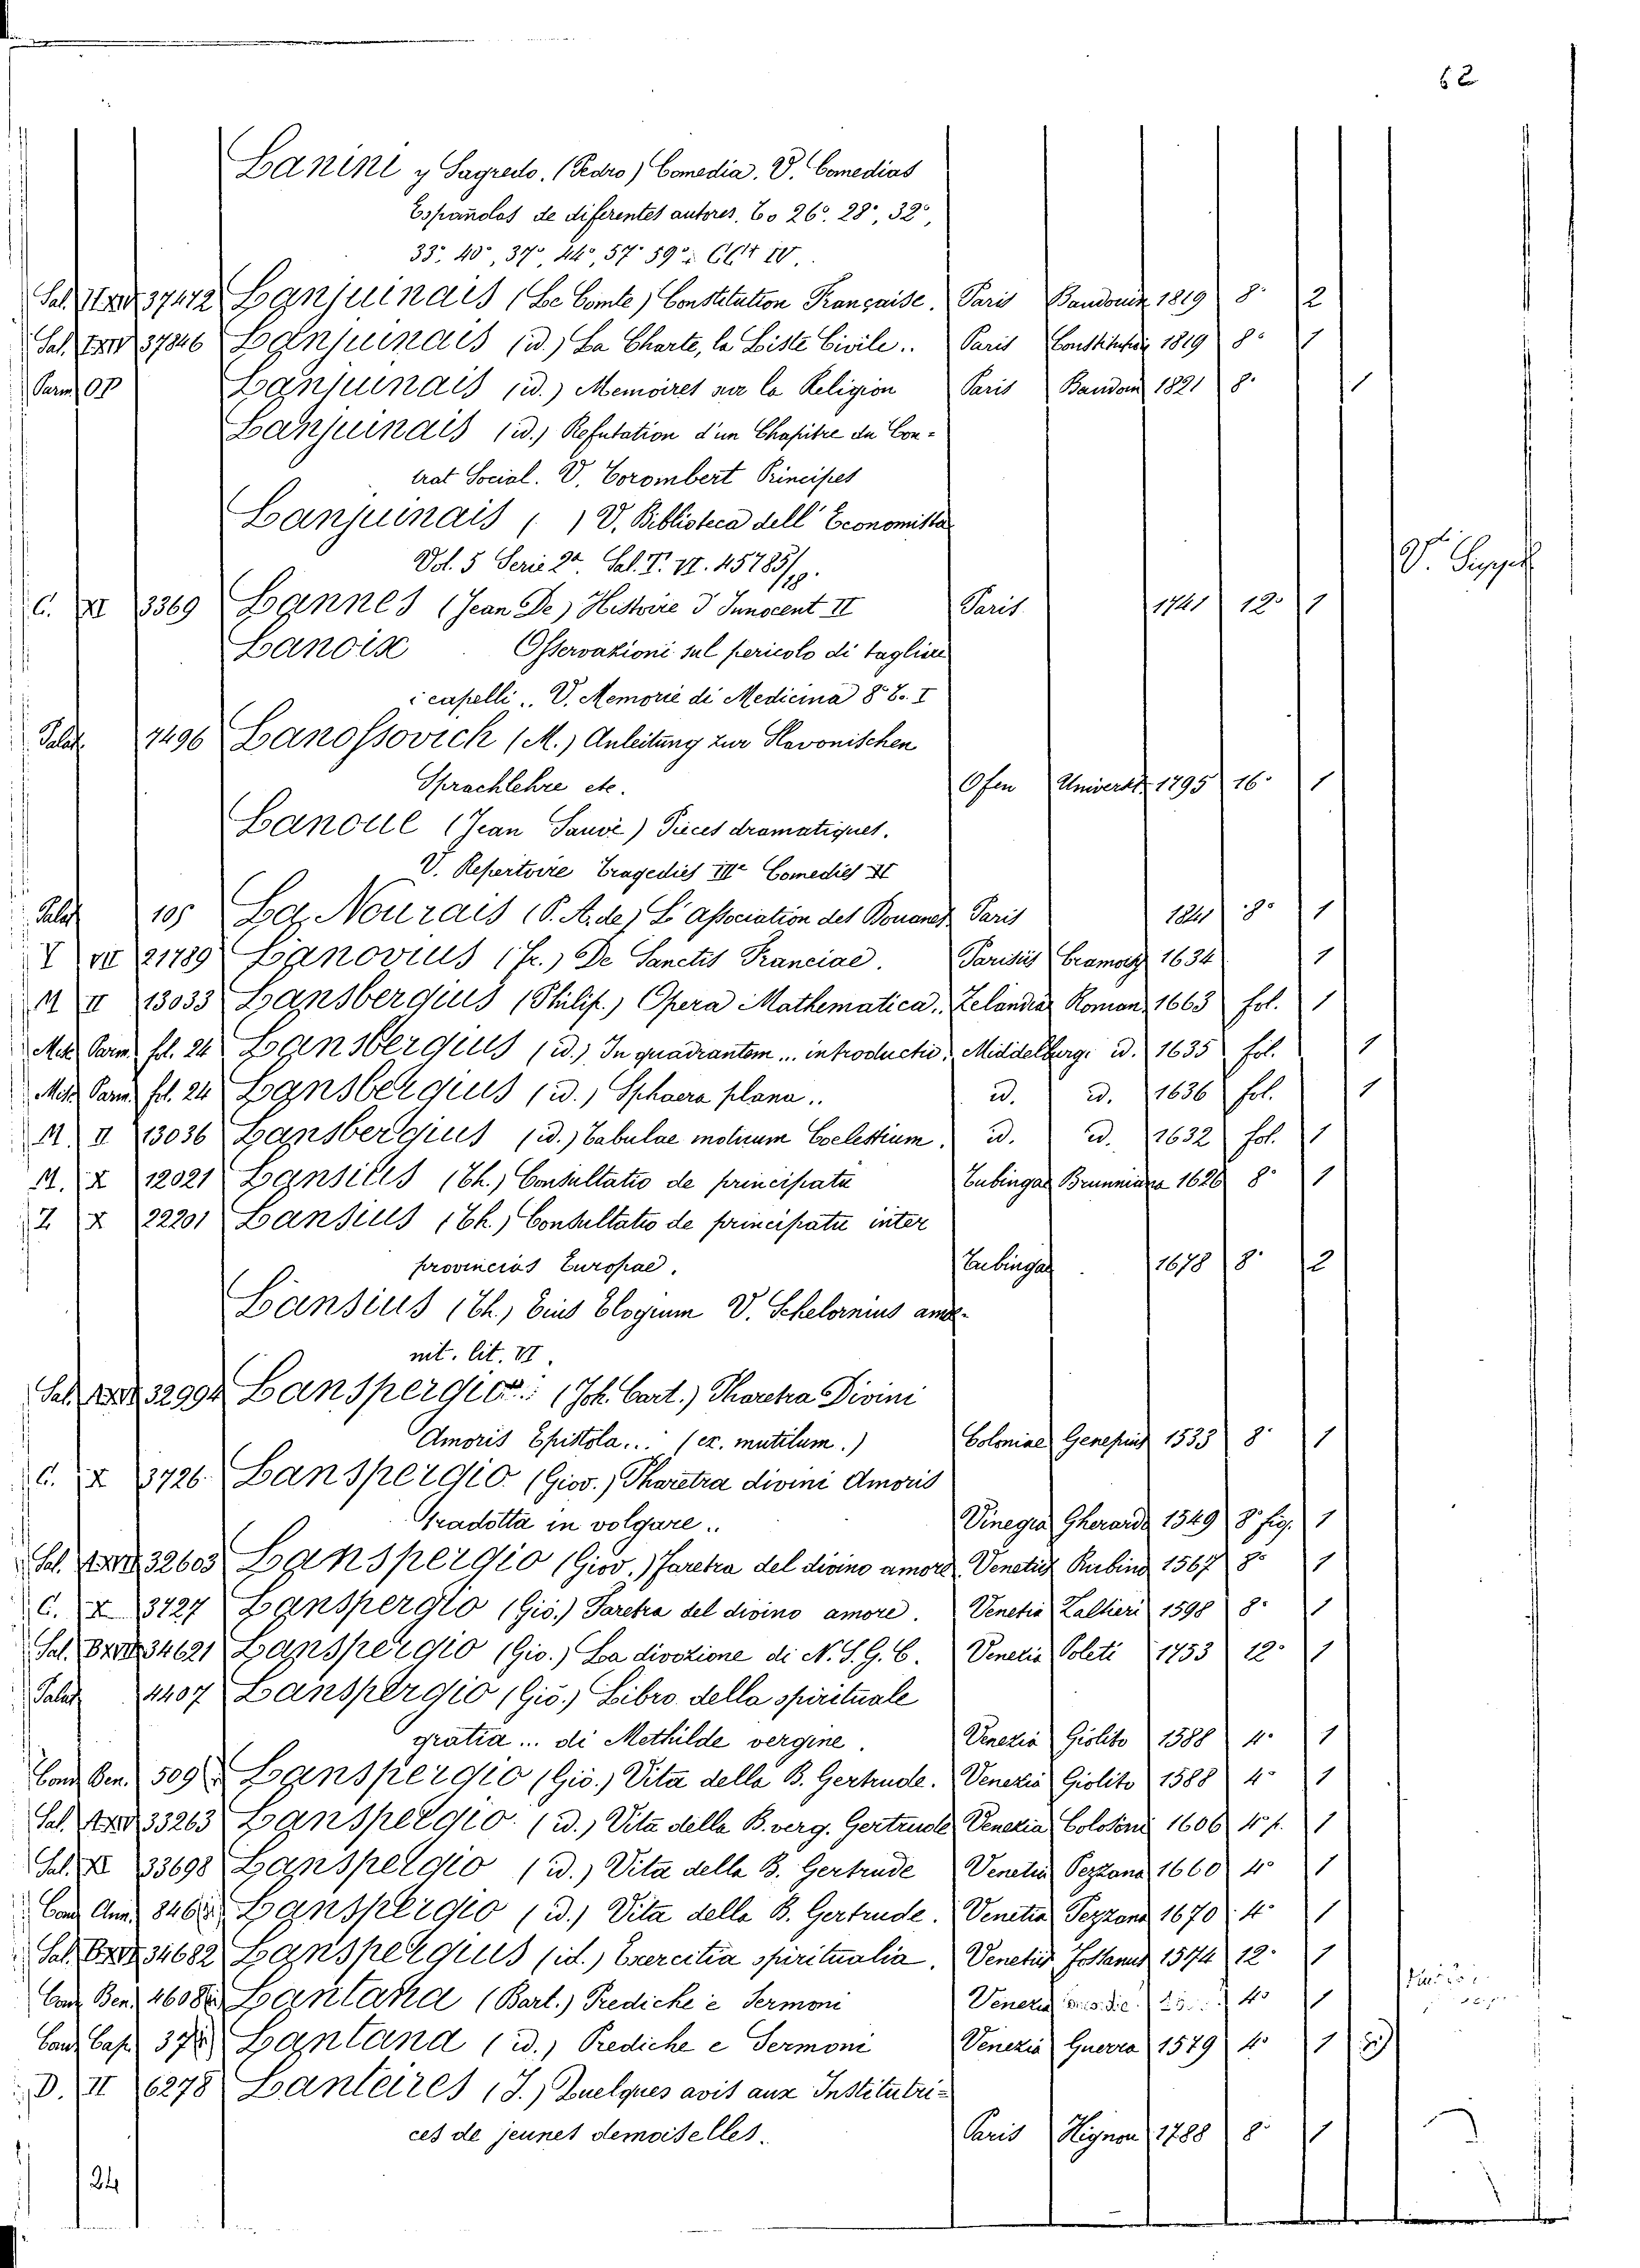 62
Lanini y Sagredo. (Pedro) Comedia. V. Comedias
Españolas de diferentes autores. To 26° 28°, 32°,
33° 40°, 37° 44°, 57° 59°
Sal. 37472 Lanjuinais (Le Comte) Constitution Française. Paris Baudouin 1819 8° 2
Sal. 37846 Lanjuinais (id.) La Charte, la Liste Civile.. Paris Constitution 1819 8° 1
Parm. OP Lanjuinais (id.) Memoires sur la Religion Paris Baudoin 1821 8° 1
Lanjuinais (id.) Refutation d'un Chapitre du Con-
trat Social. V. Corombert Principes
Lanjuinais ( ) V. Biblioteca dell' Economista
Vol. 5 Serie 2a Sal. T. VI. 45785/18.
C. XI 3369 Lannes (Jean De) Histoire d'Innocent II Paris 1741 12° 1
Lanoix Osservazioni sul pericolo di tagliere
i capelli.. V. Memorie di Medicina 8° T. I
Palat. 7496 Lanossovich (M.) Anleitung zur Slavonischen
Sprachlehre etc. Ofen Universt. 1795 16° 1
Lanoue (Jean Sauvé) Pieces dramatiques.
V. Repertoire Tragedies III° Comedies II
Palat. 105 La Nourais (P. A. de) L'association des Douanes Paris 1841 8° 1
V VII 21789 Lanovius (Fr.) De Sanctis Franciae. Parisiis Cramoisy 1634 1
M II 13033 Lansbergius (Philip.) Opera Mathematica.. Zelandiae Roman 1663 fol. 1
Misc. Parm. fol. 24 Lansbergius (id.) In quadrantem... introductio. Middelburg. id. 1635 fol. 1
Misc. Parm. fol. 24 Lansbergius (id.) Sphaera plana.. id. id. 1636 fol. 1
M. II 13036 Lansbergius (id.) Tabulae motuum Coelestium. id. id. 1632 fol. 1
M. X 12021 Lansius (Th.) Consultatio de principatu Tubingae Brunniana 1626 8° 1
Z X 22201 Lansius (Th.) Consultatio de principatu inter
provincias Europae. Tubingae 1678 8° 2
Lansius (Th.) Eius Elogium V. Schelornius amoe-
nit. lit. VI.
Sal. 32994 Lanspergio: (Joh. Cart.) Pharetra Divini
Amoris Epistola... (ex. mutilum.) Coloniae Genepius 1533 8° 1
C. X 3726 Lanspergio (Giov.) Pharetra divini Amoris
Tradotta in volgare.. Vinegia Gherardo 1549 8° fig. 1
Sal. 32603 Lanspergio (Giov.) Faretra del divino amore Venetia Rubino 1567 8° 1
C. X 3727 Lanspergio (Gio.) Faretra del divino amore. Venetia Zaltieri 1598 8° 1
Sal. 34621 Lanspergio (Gio.) La divozione di N. S. G. C. Venezia Poleti 1753 12° 1
Palat. 4407 Lanspergio (Gio.) Libro della spirituale
gratia... di Methilde vergine. Venezia Giolito 1588 4° 1
Cond. Ben. 509 Lanspergio (Gio.) Vita della B. Gertrude. Venezia Giolito 1588 4° 1
Sal. 33263 Lanspergio. (id.) Vita della B. verg. Gertrude Venezia Colosini 1606 4° f. 1
Sal. XI 33698 Lanspergio (id.) Vita della B. Gertrude Venetia Pezzana 1660 4° 1
Cond. Ann. 846 Lanspergio (id.) Vita della B. Gertrude. Venetia Pezzana 1670 4° 1
Sal. 34682 Lanspergius (id.) Exercitia spiritualia. Venetiis Jostanus 1574 12° 1
Cond. Ben. 4608 Lantana (Bart.) Prediche e Sermoni Venezia 4° 1
Cond. Cap. 37 Lantana (id.) Prediche e Sermoni Venezia Guerra 1579 4° 1
D. II 6278 Lanteires (J.) Quelques avis aux Institutri-
ces de jeunes demoiselles. Paris Hignou 1788 8° 1
24